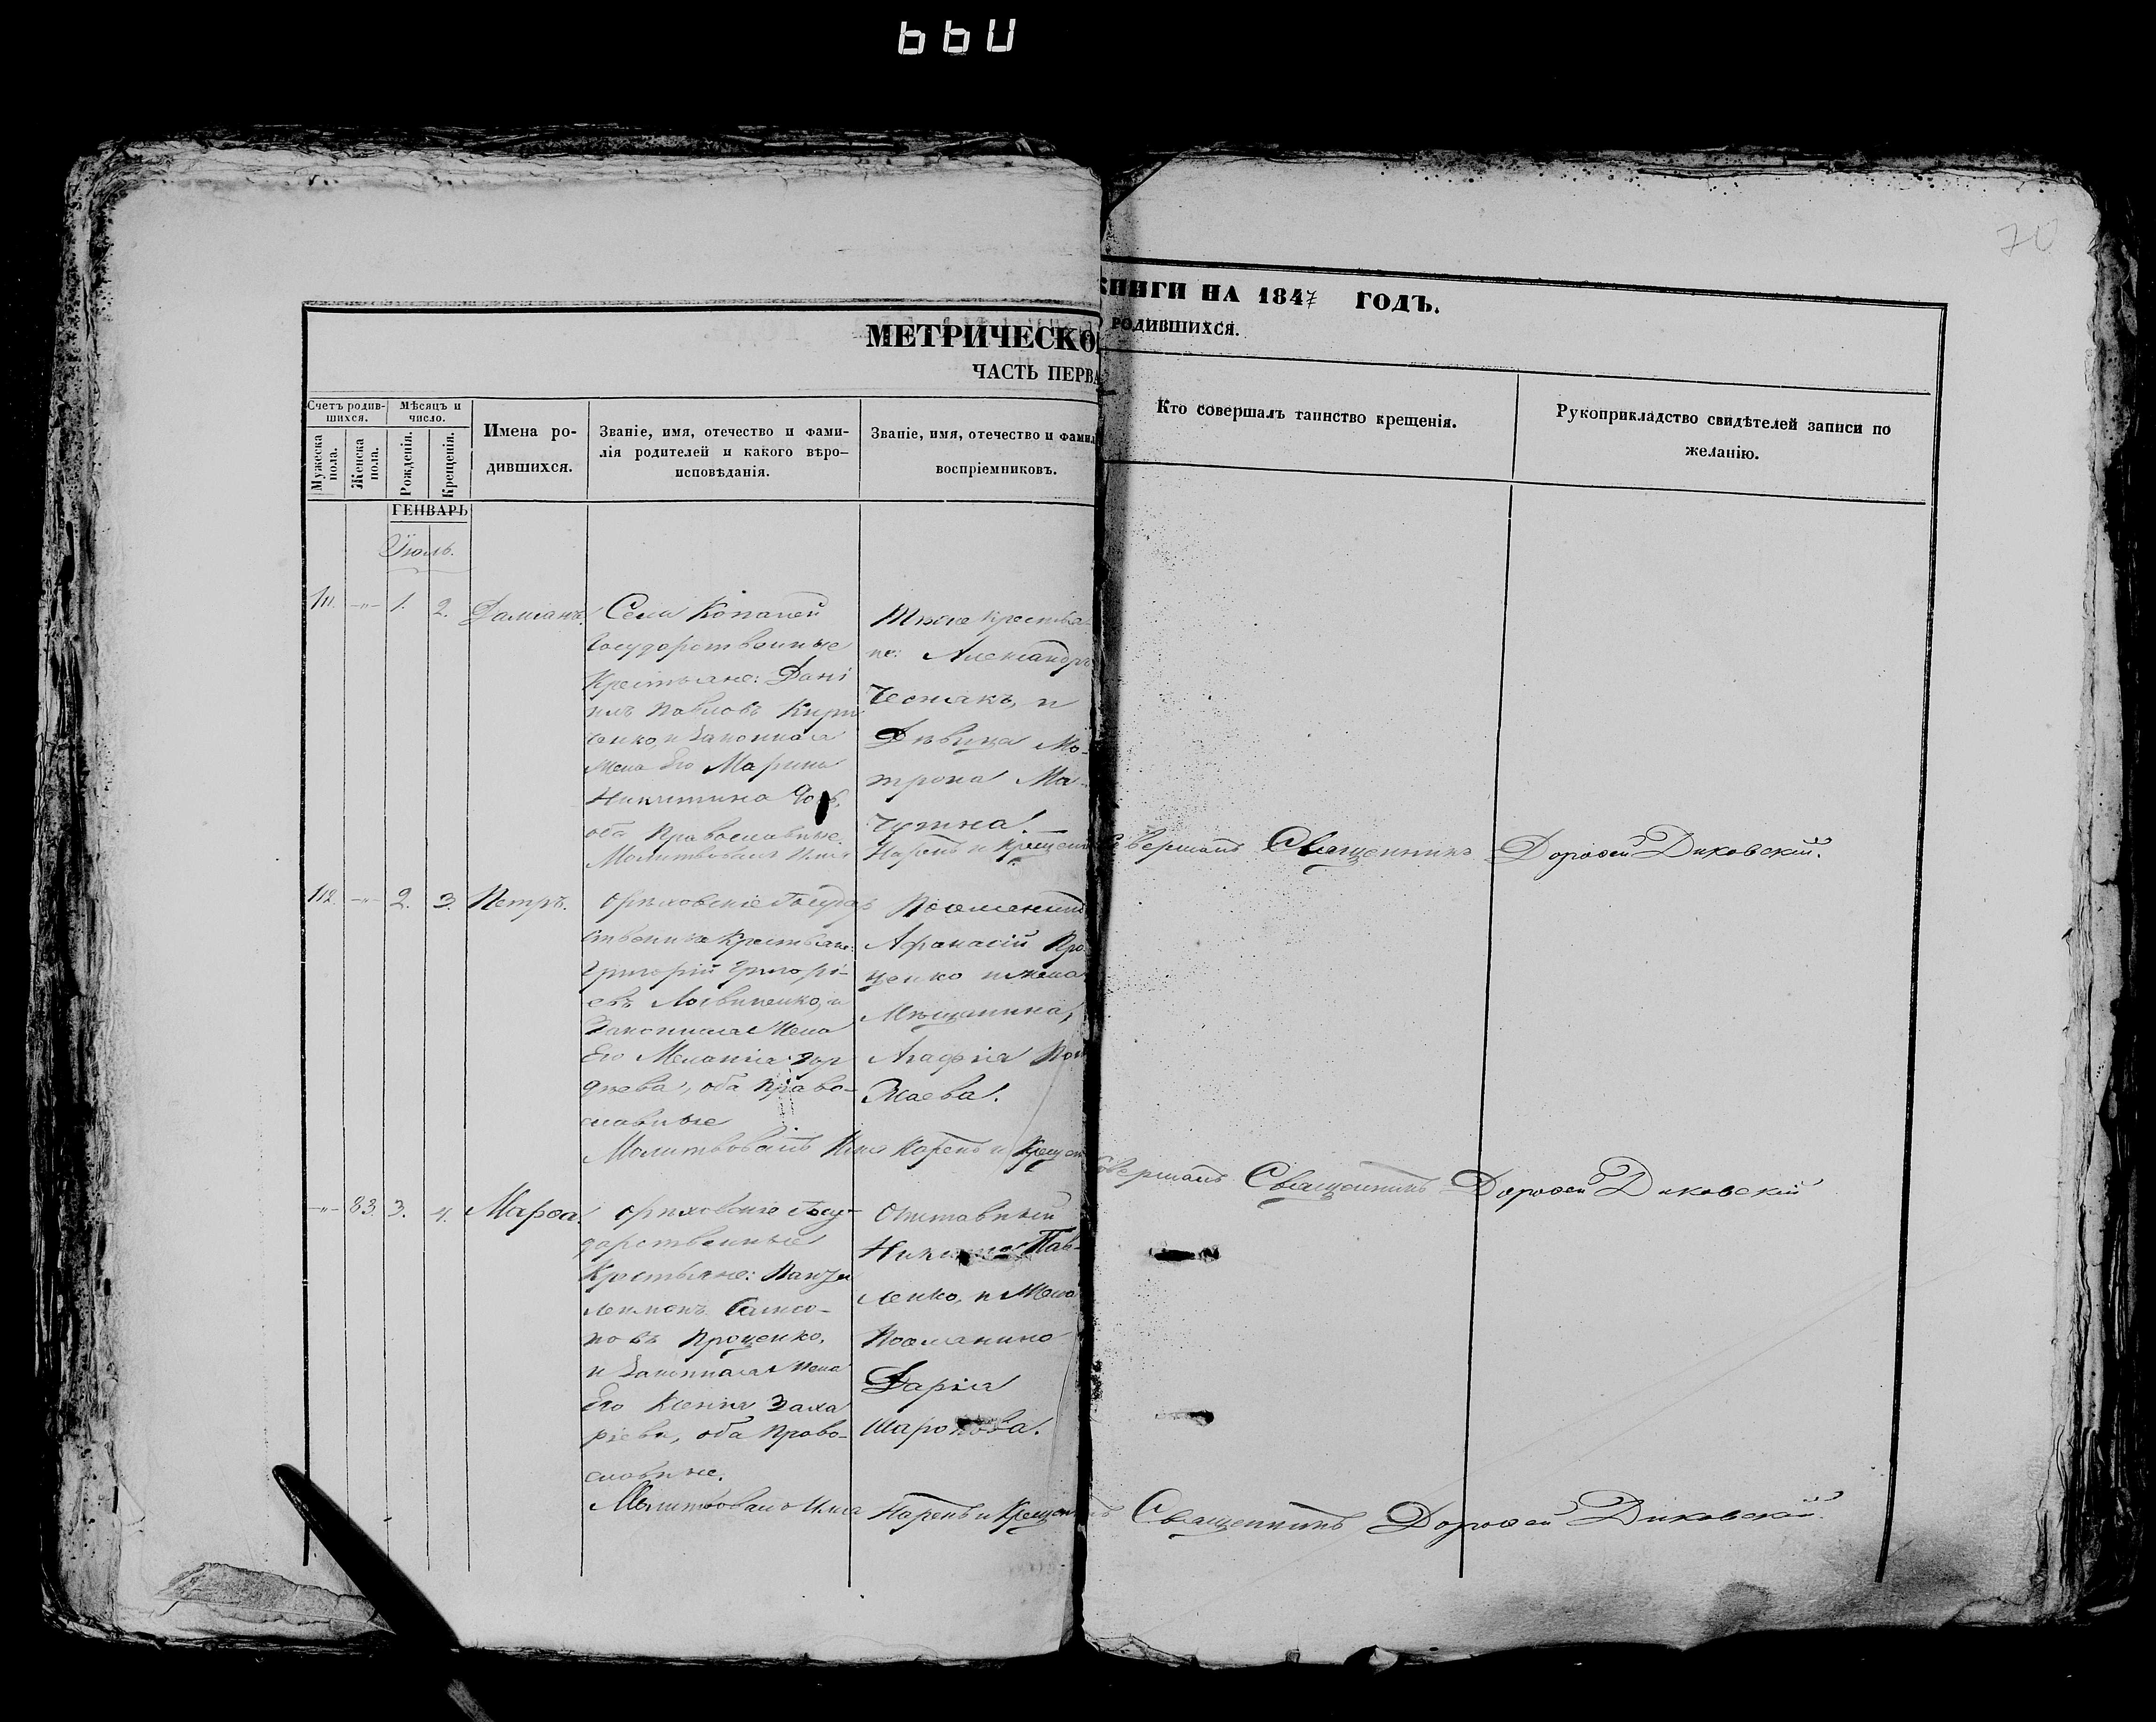 660
70
МЕТРИЧЕСКО КНИГИ НА 1847 ГОДЪ.
ЧАСТЬ ПЕРВА РОДИВШИХСЯ.
Счетъ родив-
шихся.
Мужеска
пола.
Женска
пола.
Мѣсяцъ и
число.
Рожденія.
Крещенія.
Имена ро-
дившихся.
Званіе, имя, отечество и фами-
лія родителей и какого вѣро-
исповѣданія.
Званіе, имя, отечество и фамил
воспріемниковъ.
Кто совершалъ таинство крещенія.
Рукоприкладство свидѣтелей записи по
желанію.
ГЕНВАРЬ
Іюль.
111. -"- 1. 2. Даміанъ.
Села Копаней
Государственные
Крестьяне: Дані
илъ Павловъ Кири
ченко, и Законная
Жена Его Марина
Никитина
оба Православные.
Крестья
не: Александръ
Чеснякъ, и
Дѣвица Мо-
трона Ма-
Молитвовалъ Имя Нарекъ и Крещені Совершалъ Священникъ Дорофей Диковскій.
112. -"- 2. 3. Петръ.
Орѣховскіе Государ
ственные Крестьяне:
Григорій Григорі-
евъ Логвиненко, и
Законная Жена
Его Меланія
оба Право-
славные
Афанасій Про
ценко и жена
Мѣщанина,
Агафія
Молитвовалъ Имя Нарекъ и Крещен Совершалъ Священникъ Дорофей Диковскій
-"- 83. 3. 4. Марфа.
Орѣховскіе Госу-
дарственные
Крестьяне: Панте
леимонъ Самсо-
новъ Проценко,
и Законная Жена
Его Ксенія Заха
ріева, оба Право-
славные.
Отставный
Никита Пав-
ленко, и Жена
Дарія
Шаронова.
Молитвовалъ Имя Нарекъ и Крещен Священникъ Дорофей Диковскій.